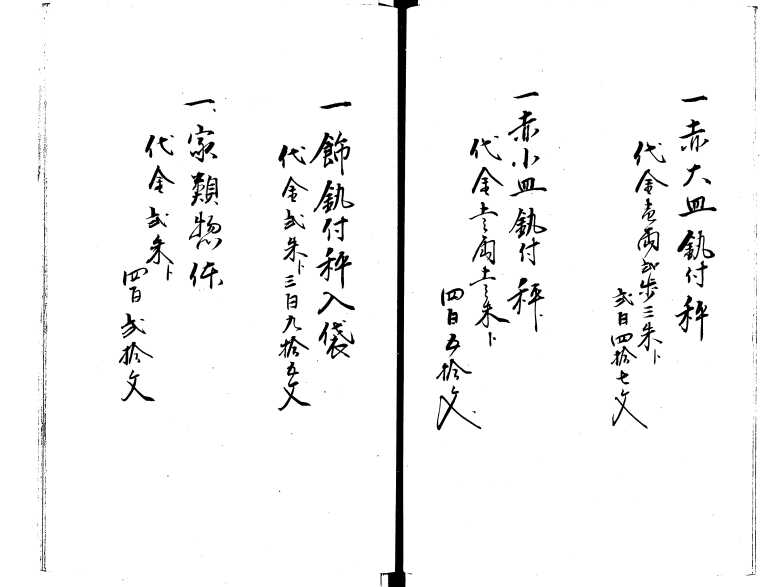 一赤大皿釻付秤
代金壱両弐歩三朱ト
弐百四拾七文
一赤小皿釻付秤
代金壱両壱朱ト
四百五拾文
一飾釻付秤入袋
代金弐朱ト三百九拾五文
一家類惣体
代金弐朱ト
四百弐拾文